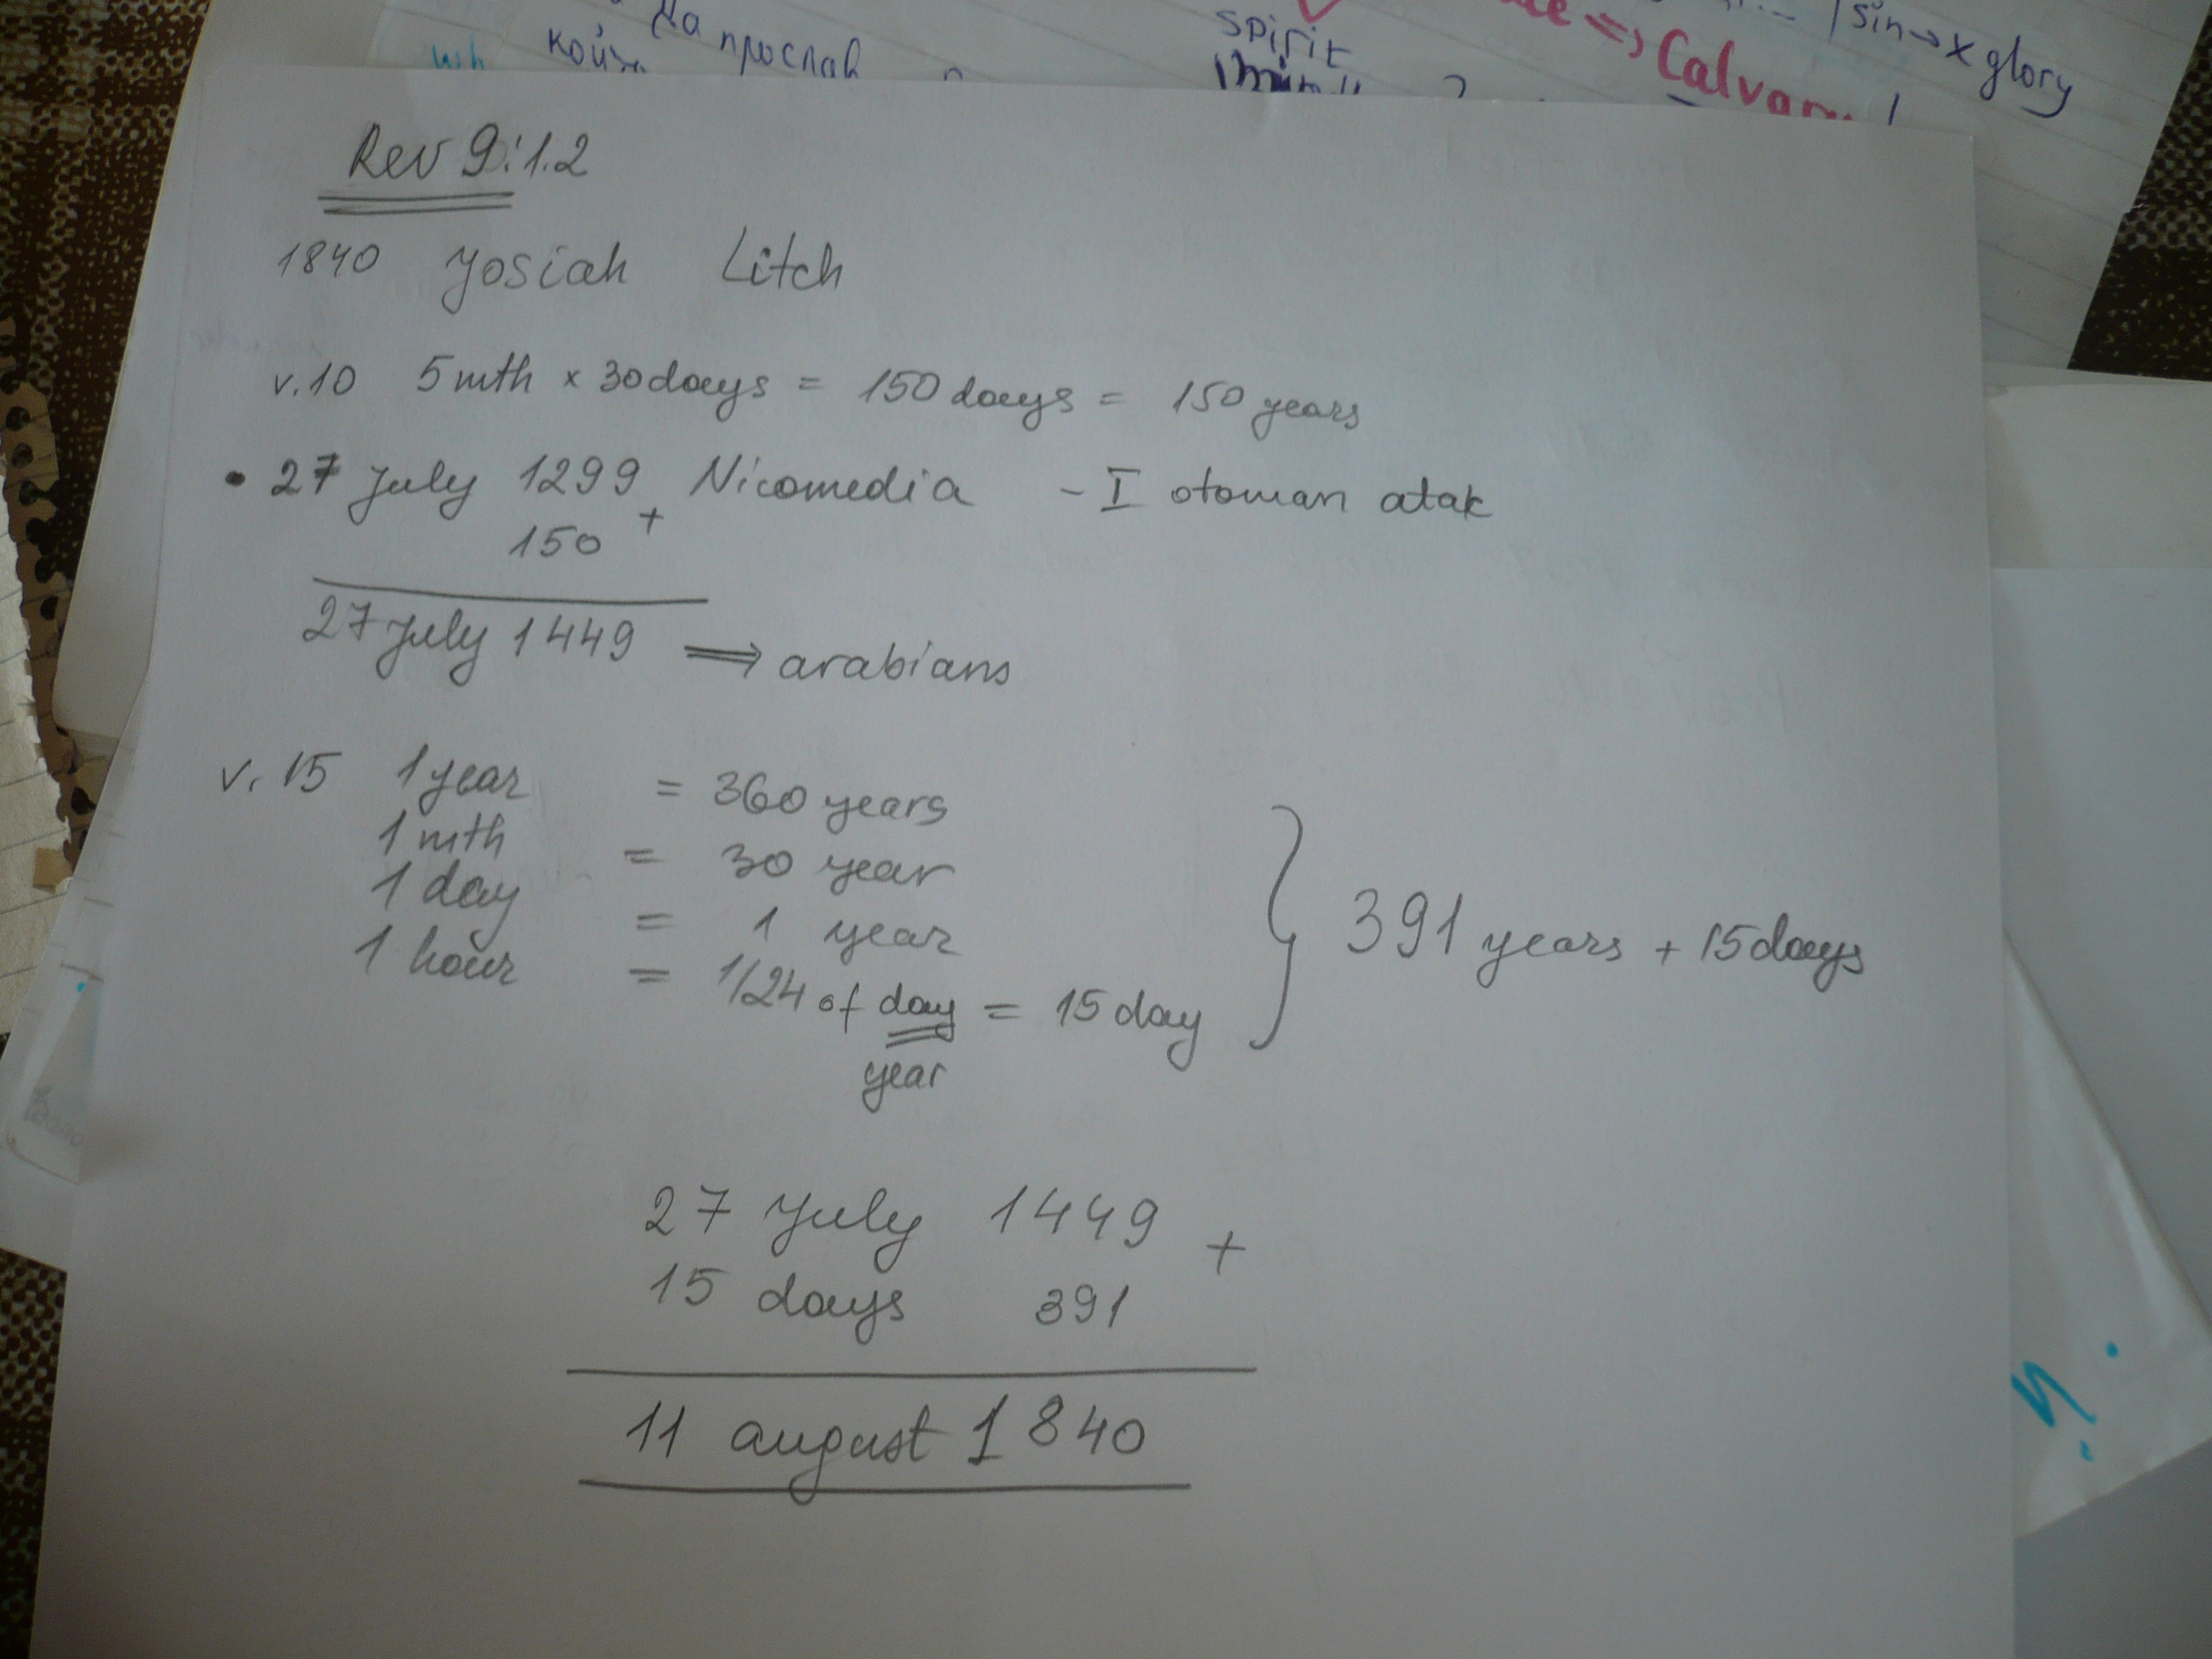 да прослав
spirit
=> Calvary
sin → x glory
Rev 9:1.2
1840 Josiah Litch
v.10 5 mth × 30 days = 150 days = 150 years
• 27 July 1299 Nicomedia - I otoman atak
150 +
27 July 1449 ⟹ arabians
v. 15 1 year = 360 years
1 mth = 30 year
1 day = 1 year
1 hour = 1/24 of day = 15 day
year
} 391 years + 15 days
27 July 1449 +
15 days 391
11 august 1840